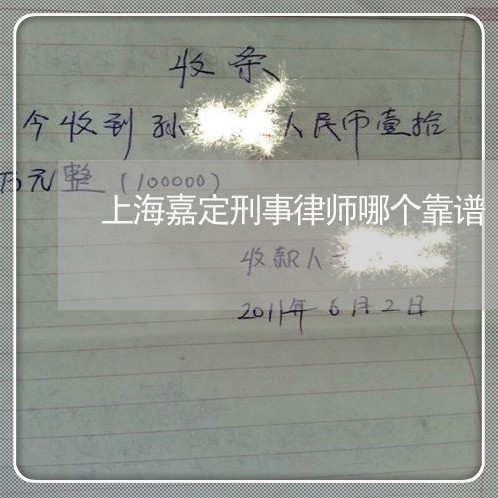 收条
今收到孙 人民币壹拾
万元整(100000)
上海嘉定刑事律师哪个靠谱
收款人
2011年6月2日